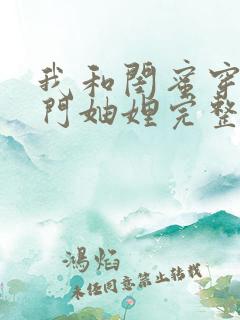 我和閨蜜穿
门妯娌完整
鴻焰
未任同意禁止转载